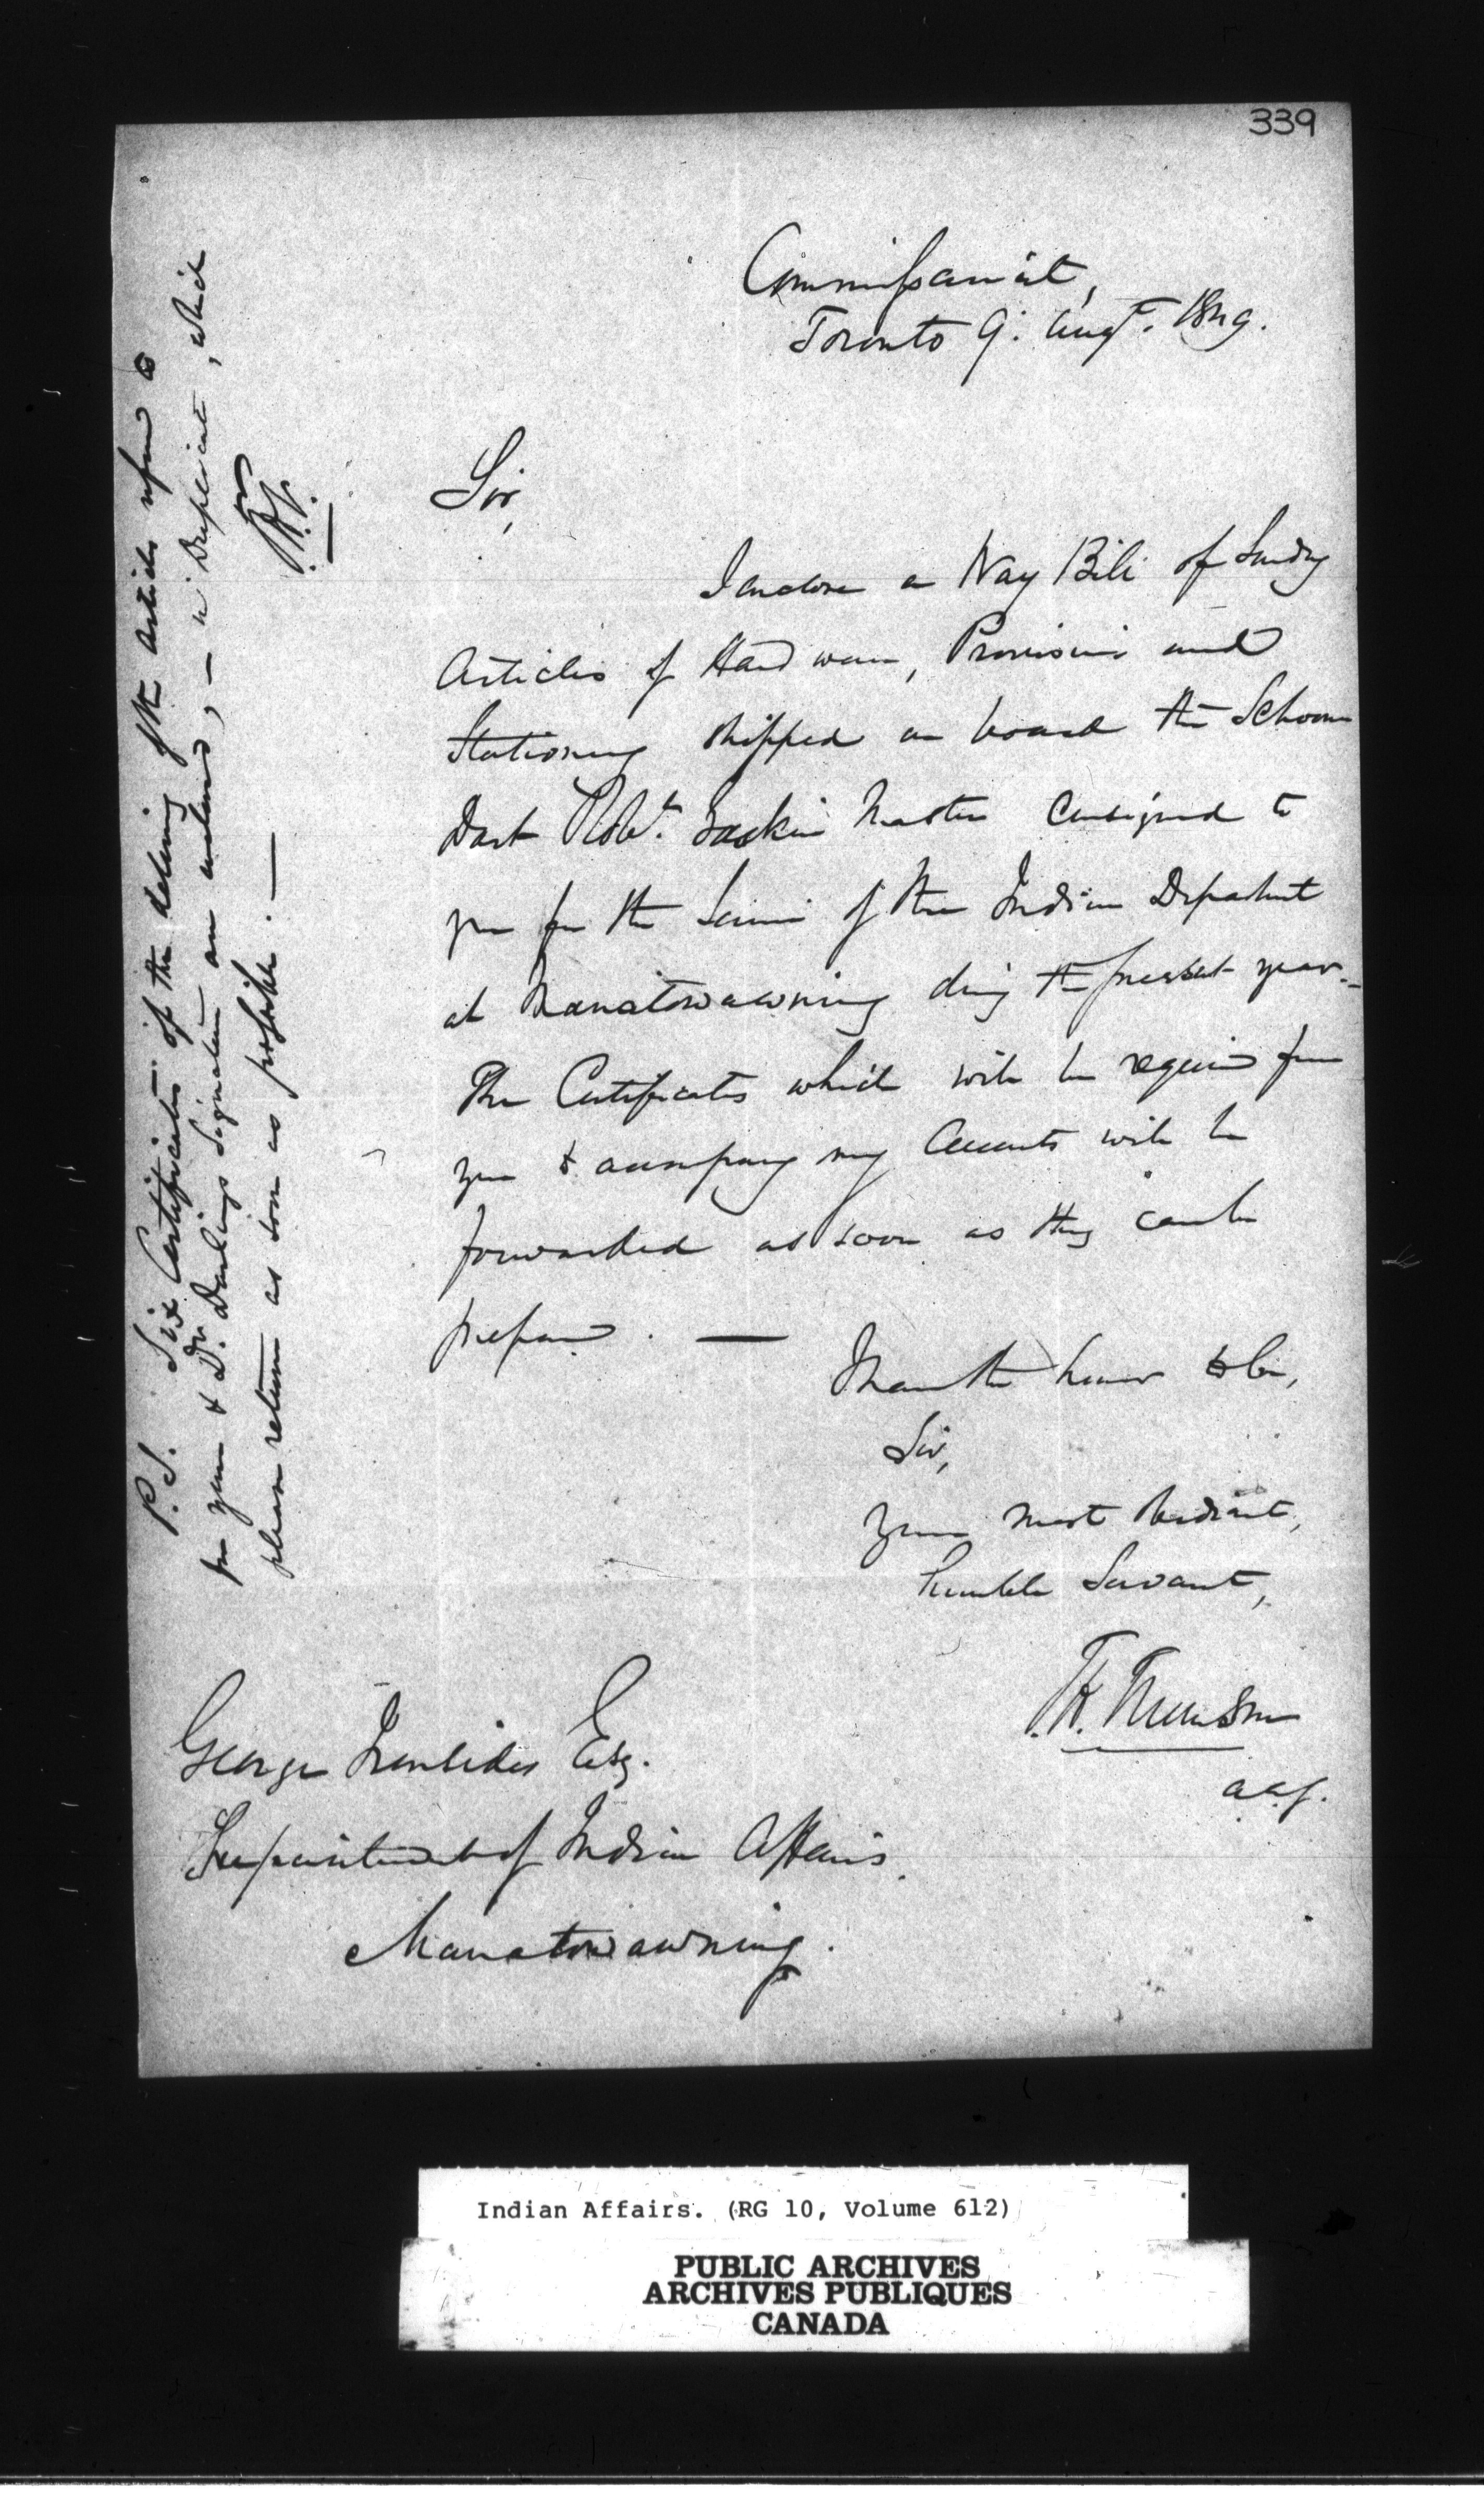 339
Commissariat,
Toronto 9. Augt. 1849.
Sir,
I enclose a Way Bill of Sundry
Articles of Hardware, Provisions and
Stationery shipped on board the Schooner
Dart Robt. Gaskin Master Consigned to
you for the Service of the Indian Department
at Manatowawning during the present year._
The Certificates which will be required from
you to accompany my Accounts will be
forwarded as soon as they can be
prepared. —
I have the honor to be,
Sir,
Your most Obedient,
humble Servant,
A.C.G.
George Ironsides Esq.
Superintendent of Indian Affairs.
Manatowawning.
P.S. Six Certificates of the delivery of the Articles referred to
for your & Dr. Darlings Signature are enclosed, — in Duplicate, which
please return as soon as possible. —
Indian Affairs. (RG 10, Volume 612)
PUBLIC ARCHIVES
ARCHIVES PUBLIQUES
CANADA